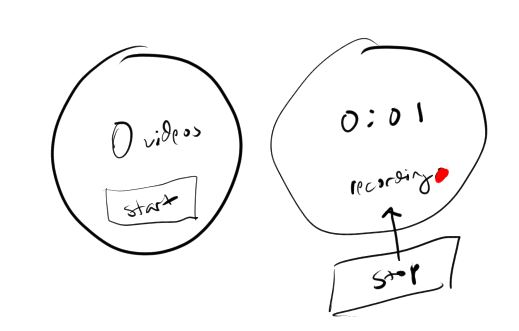 0 videos
start
0:01
recording
stop